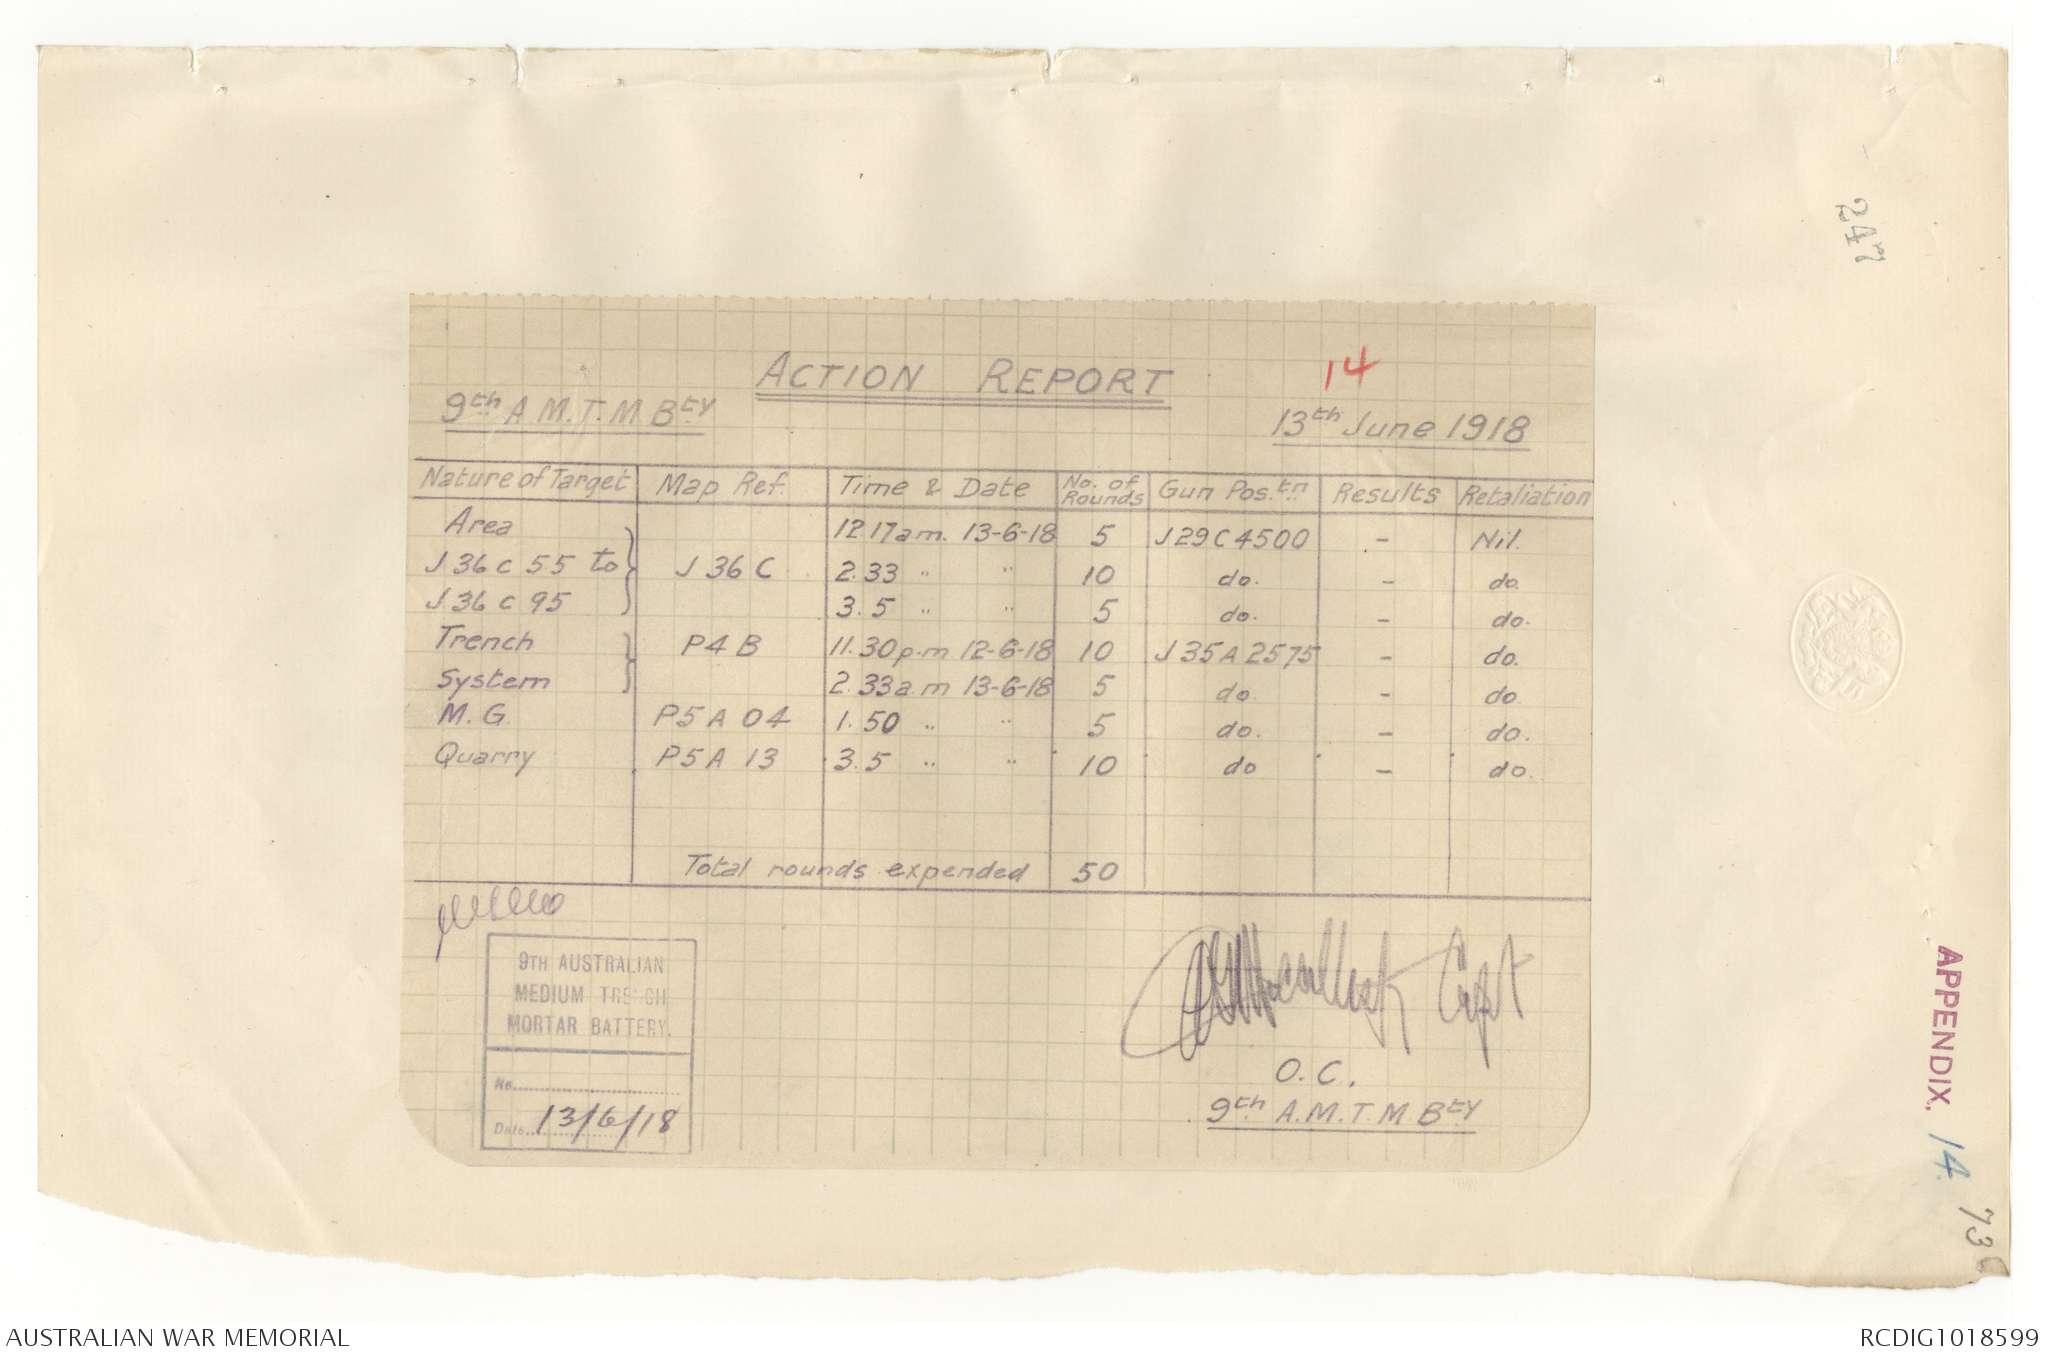 247
ACTION REPORT
14
9th A M.T.M Bty
13th June 1918
Nature of Target Map Ref. Time & Date No. of Rounds Gun Pos.tn Results Retaliation
Area 12 17 a m. 13-6-18 5 J29C4500 - Nil.
J 36 c 55 to J 36 C 2.33 " " 10 do. - do.
J 36 c 95 3. 5 " " 5 do. - do.
Trench P4 B 11.30 p.m 12-6-18 10 J 35 A 2575 - do.
System 2.33 a.m 13-6-18 5 do. - do.
M. G. P5 A 04 1. 50 " " 5 do. - do.
Quarry P5 A 13 3. 5 " " 10 do - do.
Total rounds expended 50
9TH AUSTRALIAN
MEDIUM TRENCH
MORTAR BATTERY.
No.
Date 13/6/18
Capt
O. C.
9th A.M.T.M Bty
APPENDIX. 14.
73
AUSTRALIAN WAR MEMORIAL
RCDIG1018599